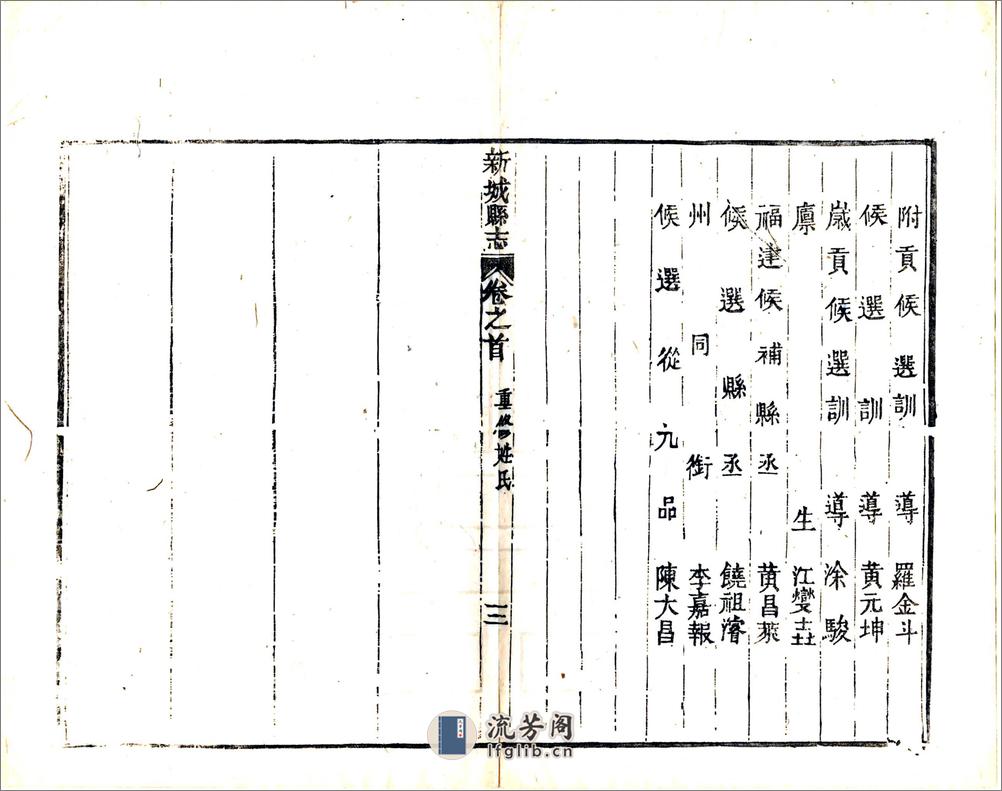 附貢候選訓導羅金斗
候選訓導黃元坤
歲貢候選訓導涂駿
廩生江燮壵
福建候補縣丞黃昌萊
候選縣丞饒祖濬
州同銜李嘉報
候選從九品陳大昌
新城縣志
卷之首
重修姓氏
三
流芳阁
lfglib.cn